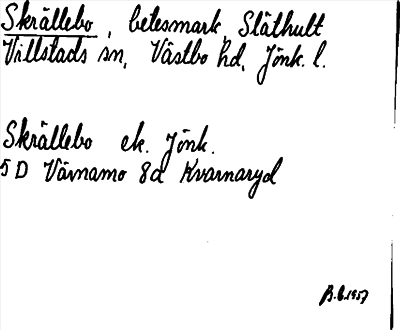 Skrällebo, betesmark, Släthult
Villstads sn, Västbo hd, Jönk. l.
Skrällebo ek. Jönk.
5 D Värnamo 8a Kvarnaryd
B.G. 1957